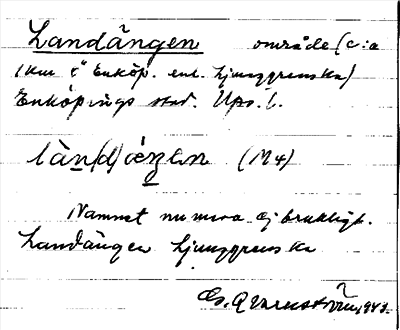 Landängen område (c:a
1 km ö Enköp. enl. Ljunggrenska)
Enköpings stad. Ups. l.
län(d)äŋen (M4)
Namnet numera ej brukligt.
Landängen Ljunggrenska
Qvarnström, 1943.